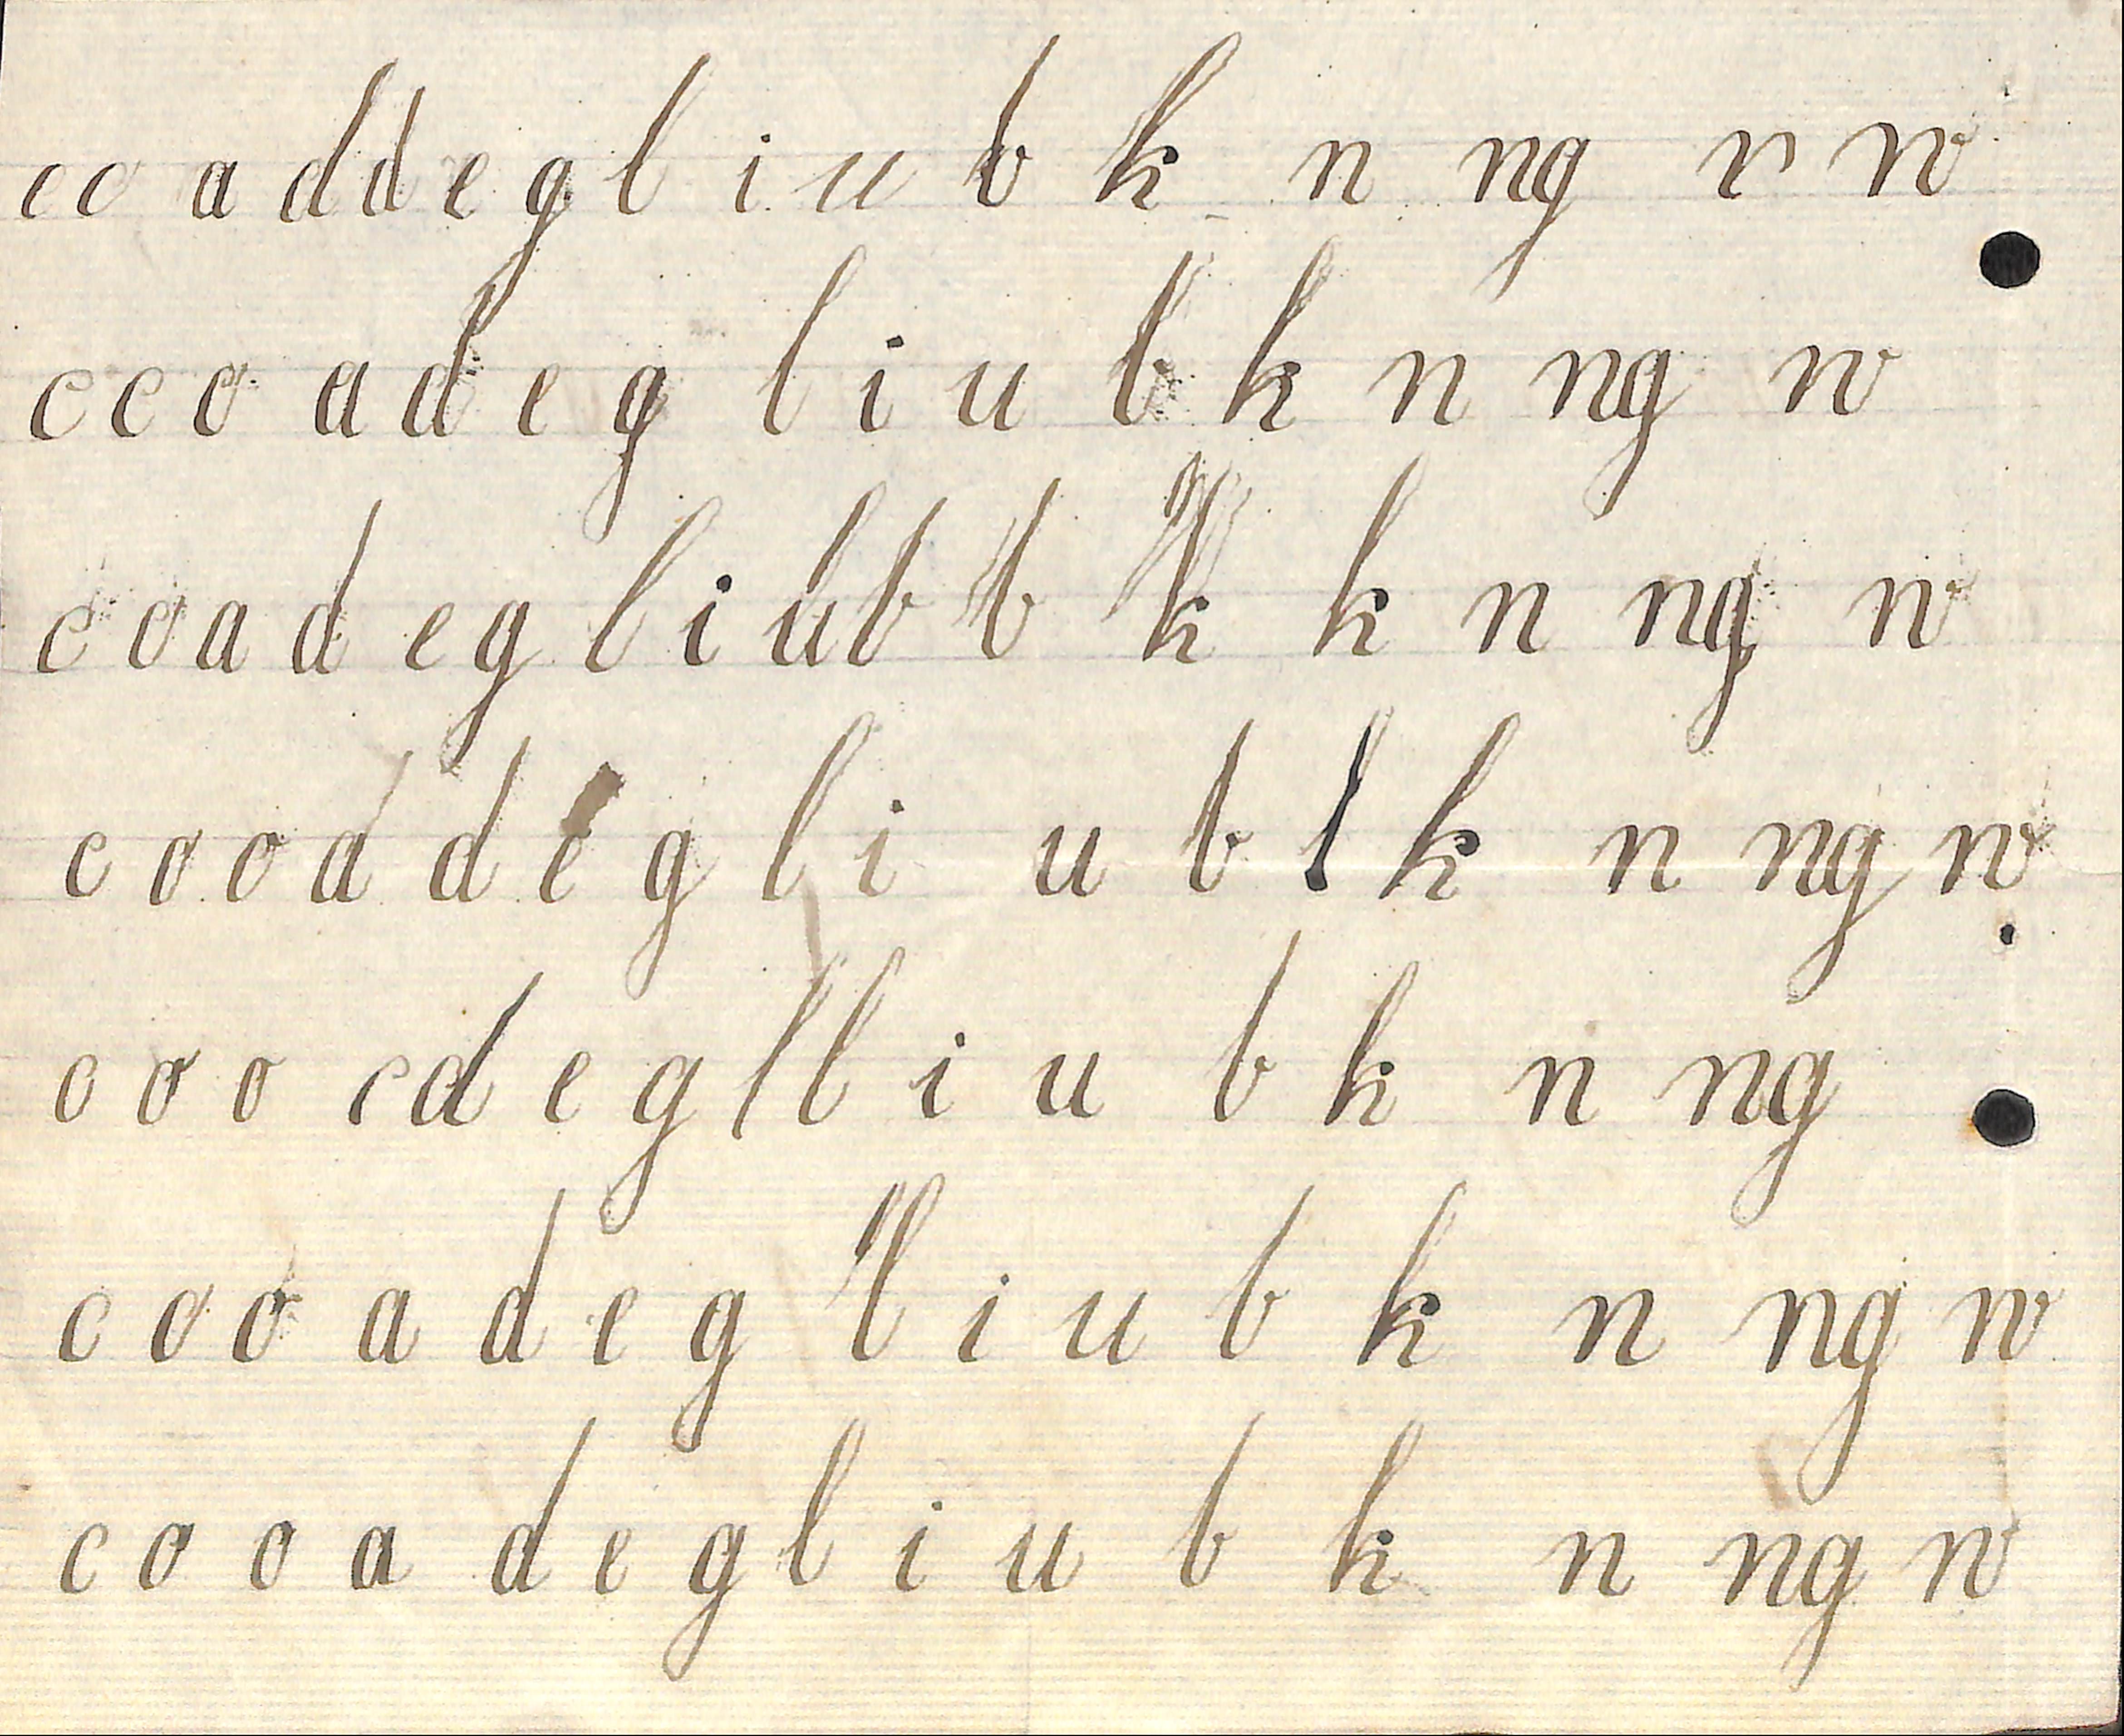 c o a d d e g l i u b k n ng v w
c c o a d e g l i u b k n ng w
c o a d e g l i u b b b k k n ng w
c o o d d e g l i u b l k n ng w
o o o c d e g l l i u b k n ng
c o o a d e g l i u b k n ng w
c o o a d e g l i u b k n ng w